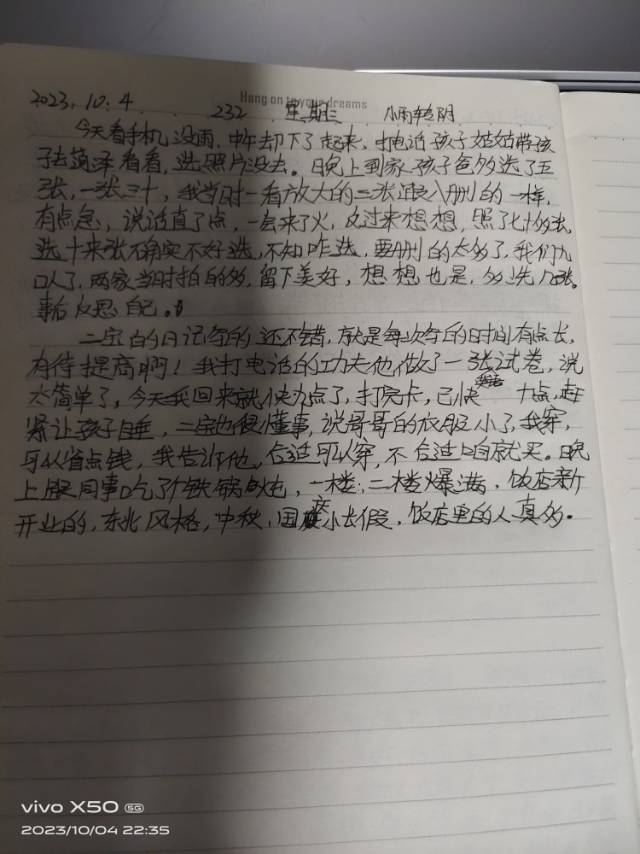 Hang on to your dreams
2023.10.4 232 星期三 小雨转阴
今天看手机没雨,中午却下了起来,打电话孩子姑姑带孩
子去菏泽看看,选照片没去。晚上到家孩子爸多选了五
张,一张三十,我当时一看放大的二张跟八删的一样,
有点急,说话直了点,一会来了火,反过来想想,照了七十多张,
选十来张不确实不好选,不知咋选,要删的太多了,我们九
口人了,两家当时拍的多,留下美好,想想也是,多选几张。
事后反思自己。
二宝的日记写的还不错,就是每次写的时间有点长,
有待提高啊!我打电话的功夫他做了一张试卷,说
太简单了,今天我回来就快九点了,打完卡,已快接近十点,赶
紧让孩子睡,二宝也很懂事,说哥哥的衣服小了,我穿,
可以省点钱,我告诉他,合适可以穿,不合适咱就买。晚
上跟同事吃了个铁锅炖,一楼,二楼爆满,饭店新
开业的,东北风格,中秋,国庆小长假,饭店里的人真多。
vivo X50 5G
2023/10/04 22:35